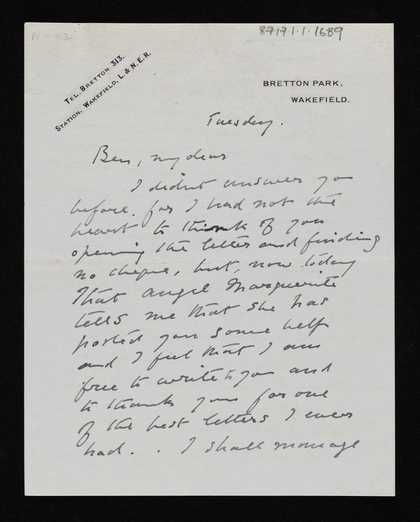 8717.1.1.1689
TEL. BRETTON 313.
STATION, WAKEFIELD, L.& N.E.R.
BRETTON PARK,
WAKEFIELD.
Tuesday.
Ben, my dear
I didn't answer you
before, for I had not the
heart to think of you
opening the letter and finding
no cheque, but, now today
that angel Marguerite
tells me that she has
posted you some help
and I feel that I am
free to write to you and
to thank you for one
of the best letters I ever
had . . I shall manage